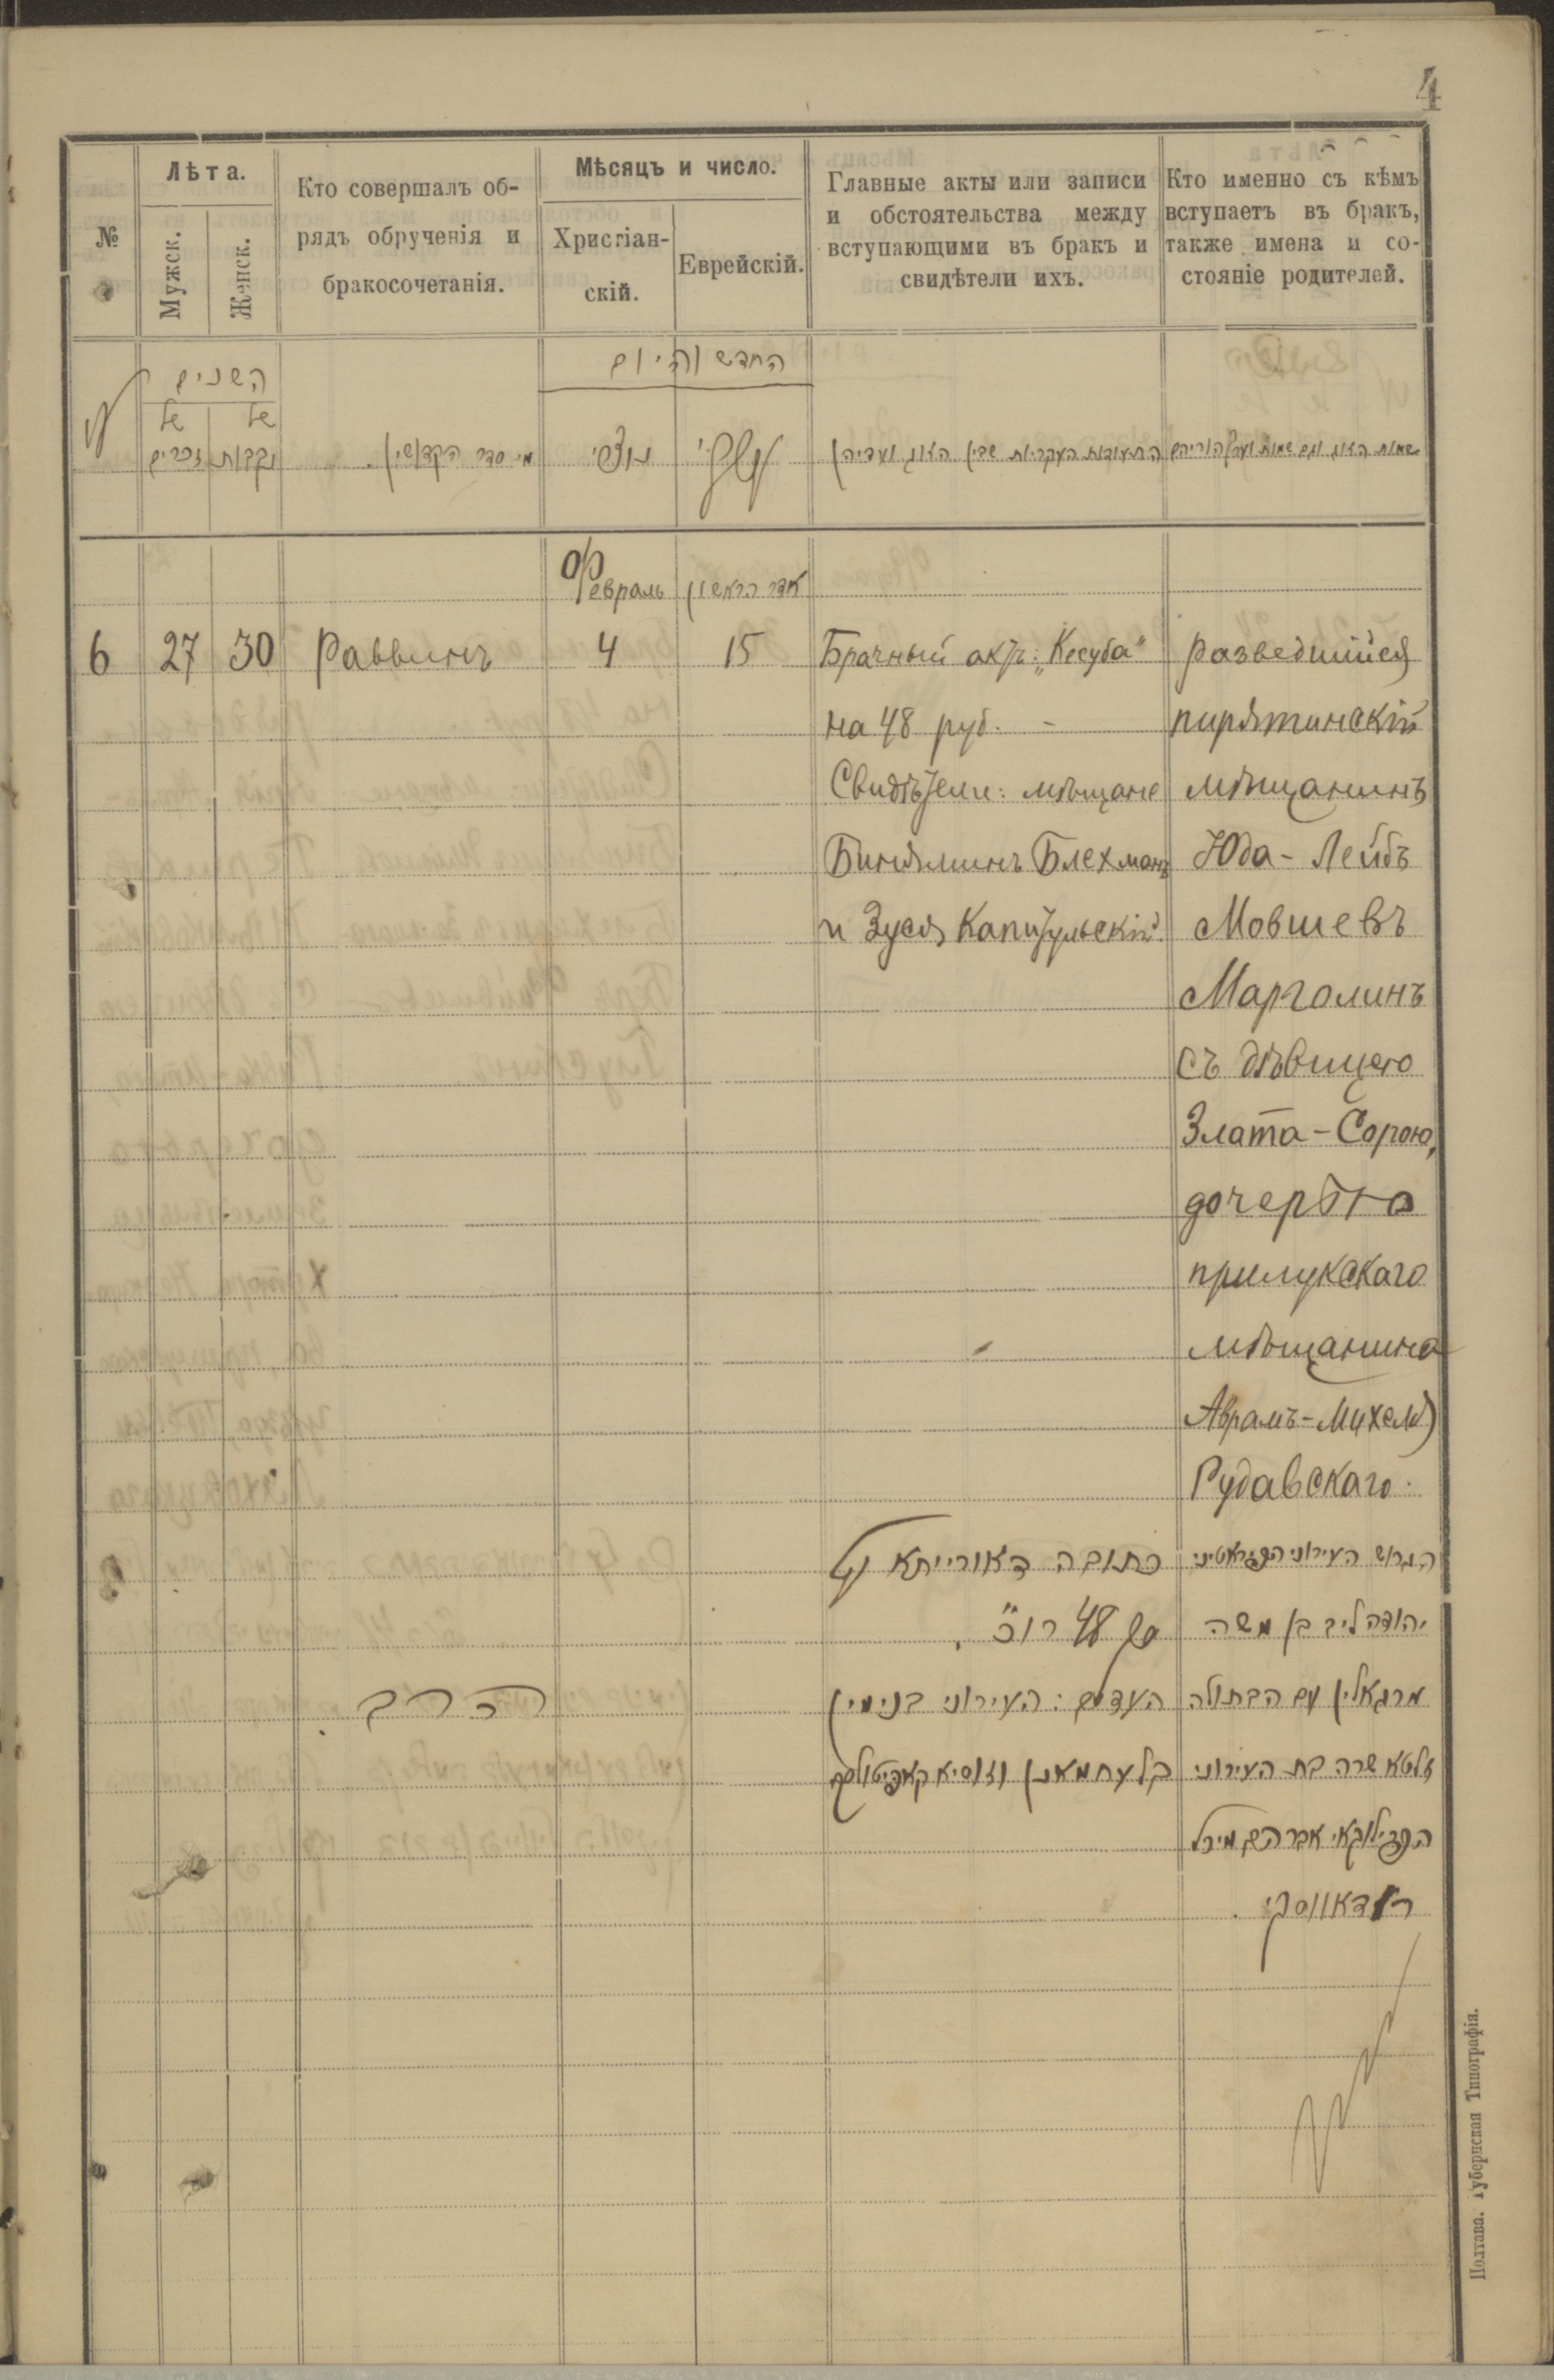 4
№
Лѣта.
Мужск.
Женск.
Кто совершалъ об-
рядъ обрученія и
бракосочетанія.
Мѣсяцъ и число.
Христіан-
скій.
Еврейскій.
Главные акты или записи
и обстоятельства между
вступающими въ бракъ и
свидѣтели ихъ.
Кто именно съ кѣмъ
вступаетъ въ бракъ,
также имена и со-
стояніе родителей.
השנים
של
זכרים
של
נקבות
מי סדר הקדושין
החדש והיום
נוצרי
התעודות העקריות שבין הזוג ועדיהן
שמות הזוג וגם שמות הוריהם
Февраль
אדר הראשון
6 27 30 Раввинъ 4 15 Брачный актъ: „Кесуба“
на 48 руб. -
Свидѣтели: мѣщане
Биняминъ Блехманъ
и Зуся Капитульскій.
разведшійся
пирятинскій
мѣщанинъ
Юда-Лейбъ
Мовшевъ
Марголинъ
съ дѣвицею
Злата-Сорою,
дочерью
прилукскаго
мѣщанина
Аврамъ-Михеля
Рудавскаго.
הרב.
כתובה דאורייתא על
סך 48 רו״כ.
העדים: העירוני בנימין
בלעחמאן וזוסיא קאפיטולסקי
הגרוש העירוני הפיראטיני
יהודה ליב בן משה
מרגאלין עם הבתולה
זלטא שרה בת העירוני
הפרילוקאי אברהם מיכל
רודאווסקי.
Полтава. Губернская Типографія.